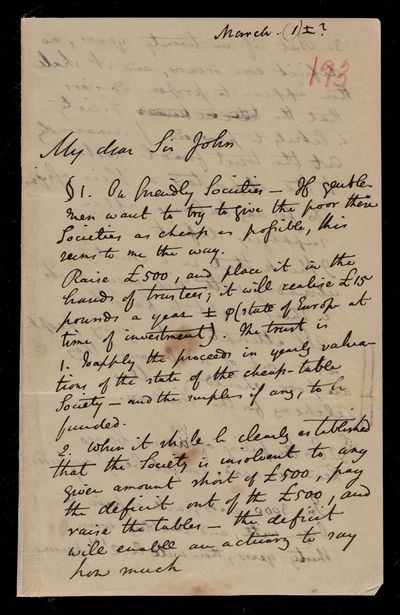 March. (1) ± ?
193
My dear Sir John
§ 1. On friendly Societies — If gentle-
men want to try to give the poor their
Societies as cheap as possible, this
seems to me the way.
Raise £500, and place it in the
hands of trustees; it will realise £15
pounds a year ± φ (state of Europe at
time of investment). The trust is
1. To apply the proceeds in yearly valua-
tions of the state of the cheap-table
Society — and the surplus if any, to be
funded.
2. When it shall be clearly established
that the Society is insolvent to any
given amount short of £500, pay
the deficit out of the £500, and
raise the tables — the deficit
will enable an actuary to say
how much